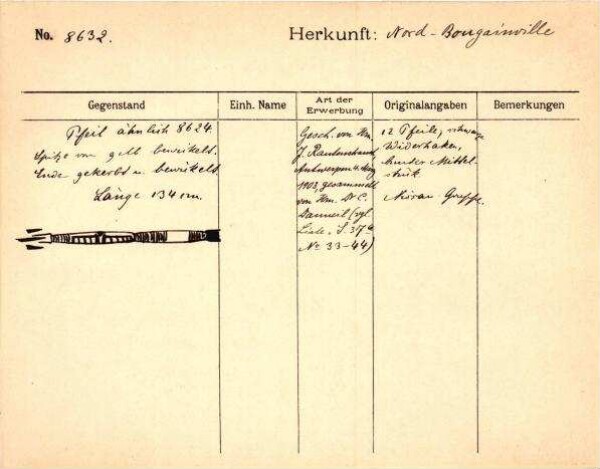 No. 8632.
Herkunft: Nord-Bougainville
Gegenstand
Einh. Name
Art der
Erwerbung
Originalangaben
Bemerkungen
Pfeil ähnlich 8624.
Spitze von gelb bewickelt.
Ende gekerbt u. bewickelt.
Länge 134 cm.
Gesch. von Hrn.
J. Rautenstrauch
Antwerpen
1903, gesammelt
von Hrn. Dr C.
Dannert (vgl.
Liste. S. 37a
No 33-44)
12 Pfeile, schwarze
Widerhaken,
bunter Mittel-
stück